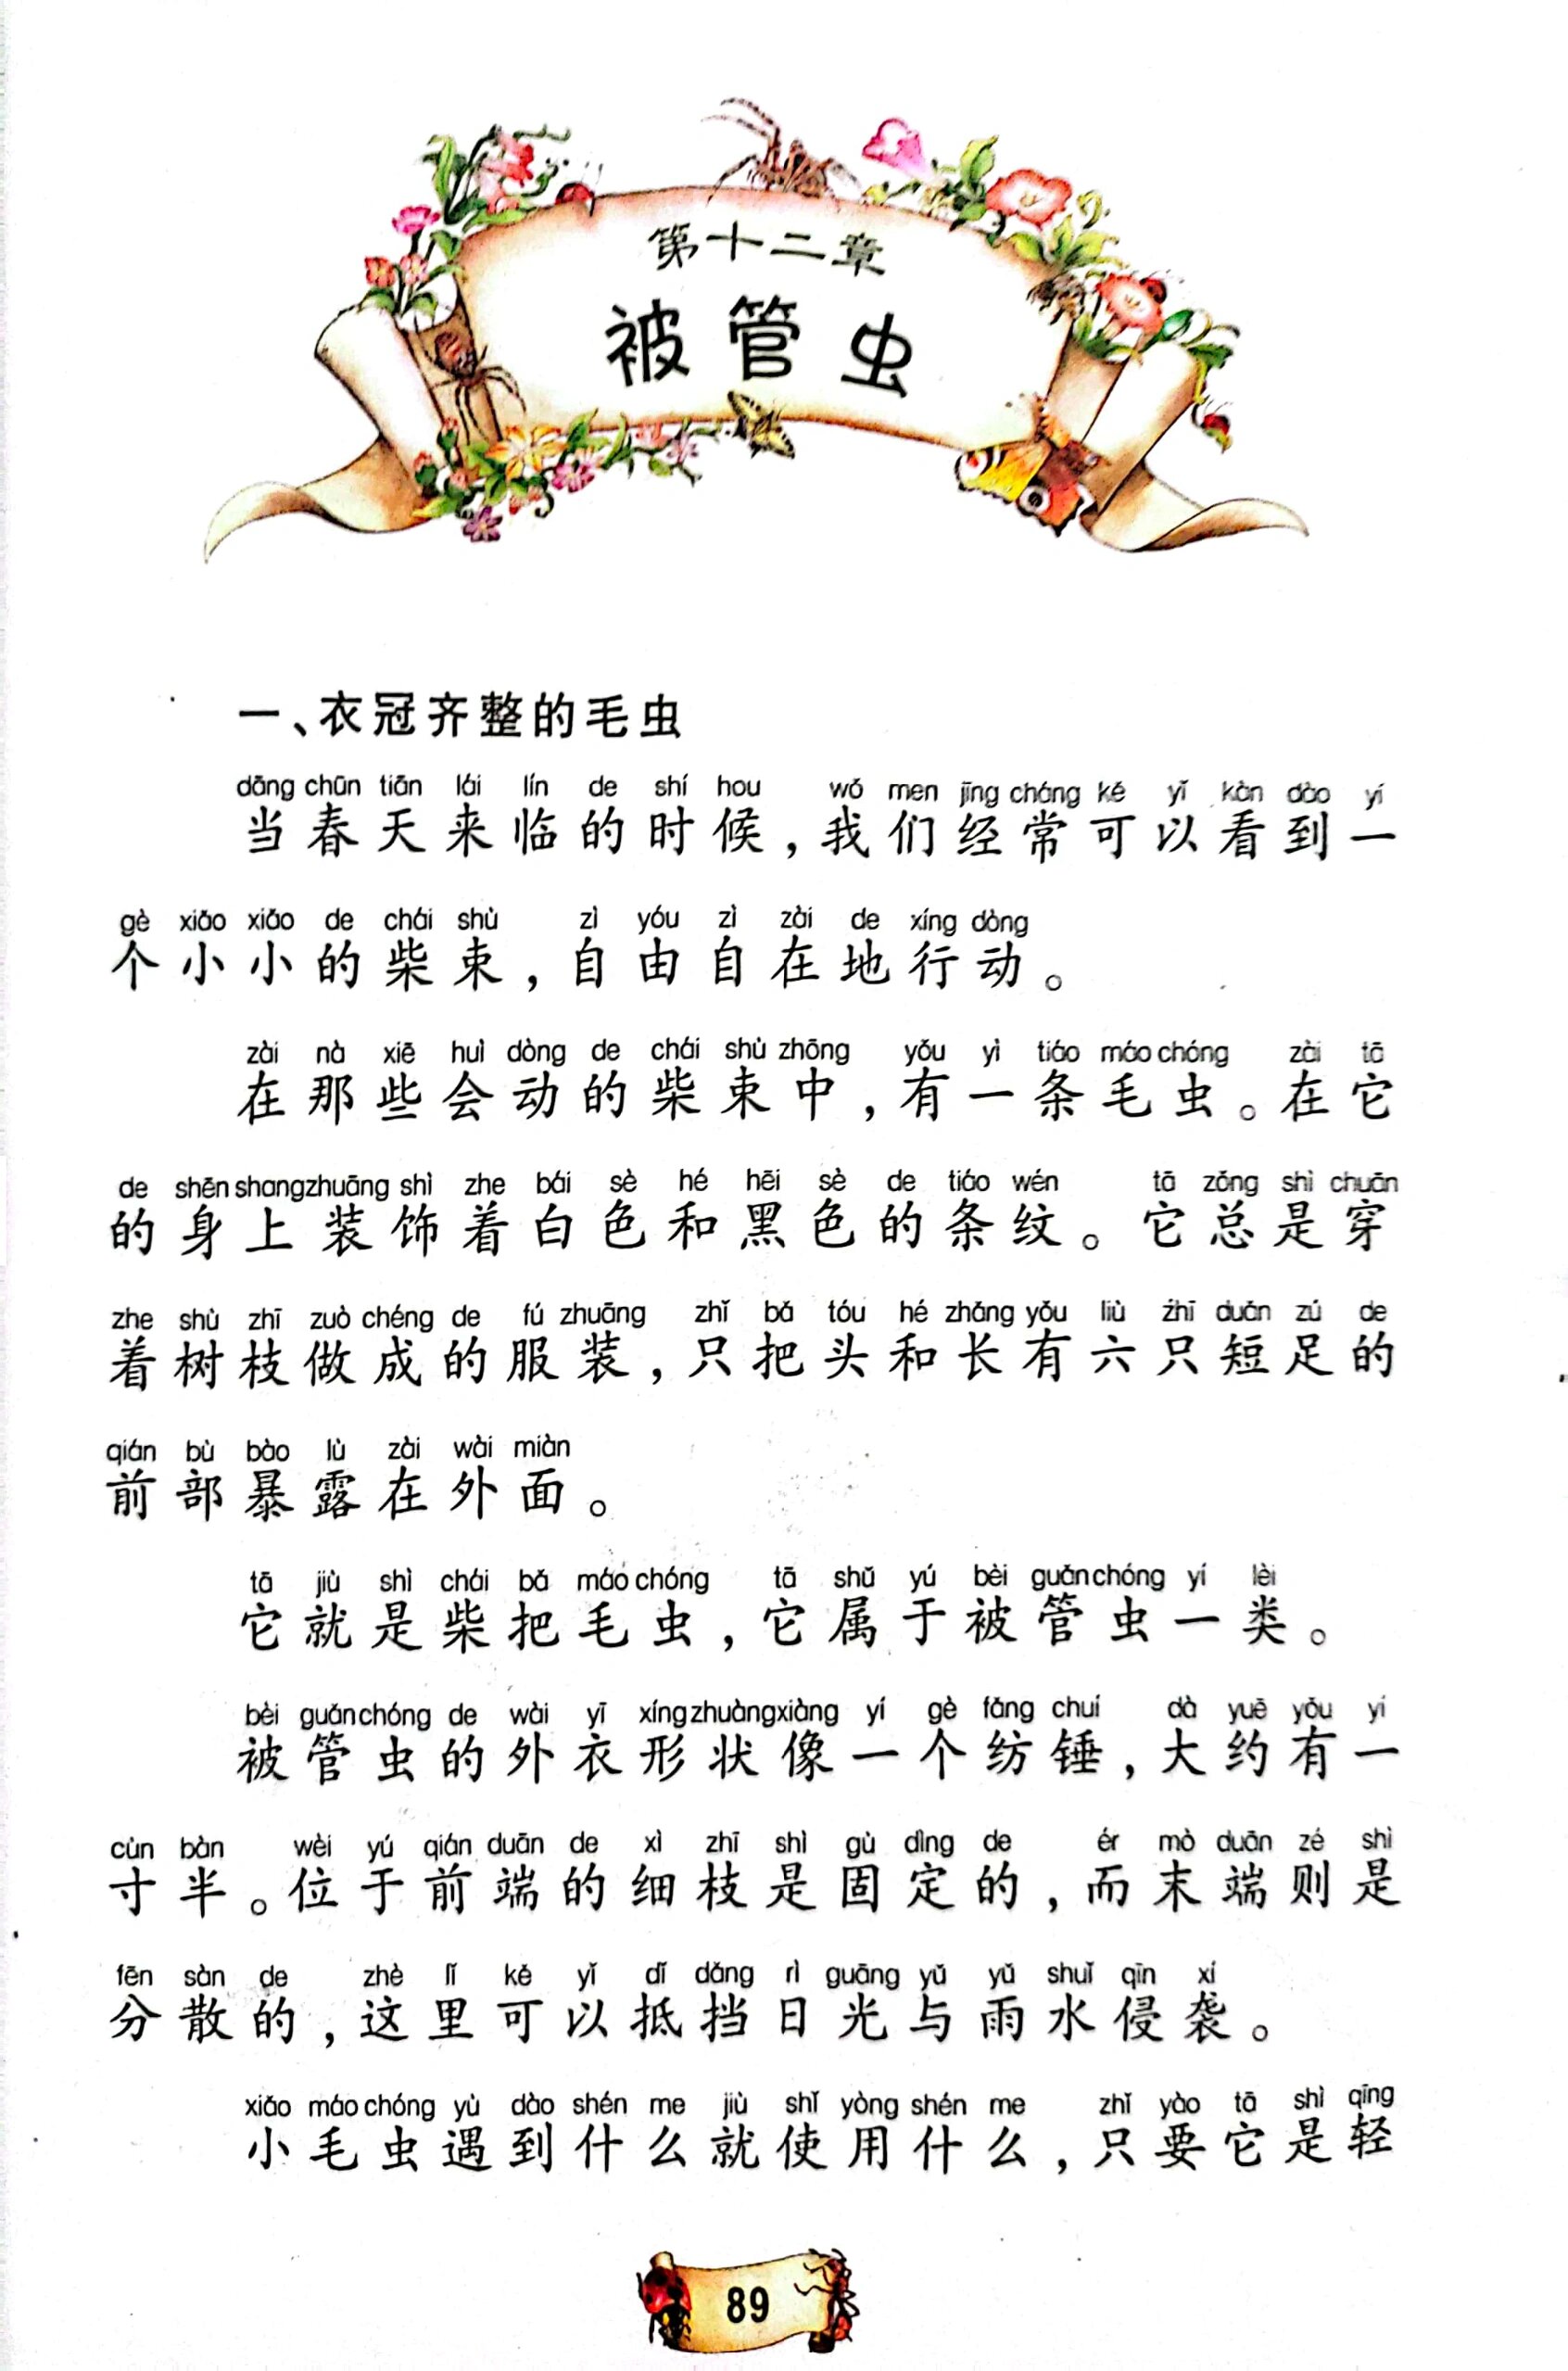 第十二章
被管虫
一、衣冠齐整的毛虫
dāng chūn tiān lái lín de shí hou wǒ men jīng cháng kě yǐ kàn dào yí
当春天来临的时候，我们经常可以看到一
gè xiǎo xiǎo de chái shù zì yóu zì zài de xíng dòng
个小小的柴束，自由自在地行动。
zài nà xiē huì dòng de chái shù zhōng yǒu yì tiáo máo chóng zài tā
在那些会动的柴束中，有一条毛虫。在它
de shēn shang zhuāng shì zhe bái sè hé hēi sè de tiáo wén tā zǒng shì chuān
的身上装饰着白色和黑色的条纹。它总是穿
zhe shù zhī zuò chéng de fú zhuāng zhǐ bǎ tóu hé zhǎng yǒu liù zhī duǎn zú de
着树枝做成的服装，只把头和长有六只短足的
qián bù bào lù zài wài miàn
前部暴露在外面。
tā jiù shì chái bǎ máo chóng tā shǔ yú bèi guǎn chóng yí lèi
它就是柴把毛虫，它属于被管虫一类。
bèi guǎn chóng de wài yī xíng zhuàng xiàng yí gè fǎng chuí dà yuē yǒu yí
被管虫的外衣形状像一个纺锤，大约有一
cùn bàn wèi yú qián duān de xì zhī shì gù dìng de ér mò duān zé shì
寸半。位于前端的细枝是固定的，而末端则是
fēn sàn de zhè lǐ kě yǐ dǐ dǎng rì guāng yǔ yǔ shuǐ qīn xí
分散的，这里可以抵挡日光与雨水侵袭。
xiǎo máo chóng yù dào shén me jiù shǐ yòng shén me zhǐ yào tā shì qīng
小毛虫遇到什么就使用什么，只要它是轻
89